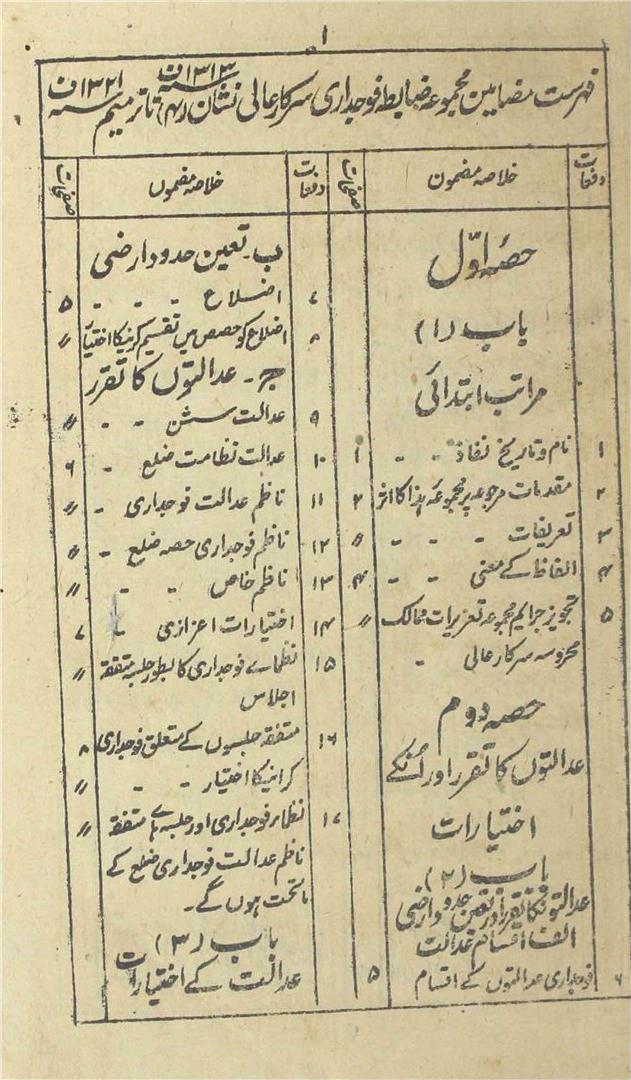 ۱
فہرست مضامین مجموعہ ضابطہ فوجداری سرکار عالی نشان (۴) ۱۳۱۳ ف تا ترمیم سنہ ۱۳۲۱ ف
دفعات خلاصہ مضمون صفحات
حصۂ اوّل
باب (۱)
مراتب ابتدائی
۱ نام و تاریخ نفاذ - - ۱
۲ مقدمات مرجوعہ پر مجموعہ ہذا کا اثر ۲
۳ تعریفات - - - ״
۴ الفاظ کے معنی - - ۴
۵ تجویز جرایم مجموعہ تعزیرات ممالک ״
محروسہ سرکار عالی -
حصہ دوم
عدالتوں کا تقرر اور اُنکے
اختیارات
باب (۲)
عدالتونکا تقرر اور تعین حدود ارضی
الف اقسام عدالت
۶ فوجداری عدالتوں کے اقسام ۵
دفعات خلاصہ مضموں صفحات
ب۔ تعین حدود ارضی
۷ اضلاع - - - ۵
۸ اضلاع کو حصص میں تقسیم کرنیکا اختیار ״
ج۔ عدالتوں کا تقرر
۹ عدالت سشن - - ״
۱۰ عدالت نظامت ضلع - ۶
۱۱ ناظم عدالت فوجداری - ״
۱۲ ناظم فوجداری حصہ ضلع - ״
۱۳ ناظم خاص - - ״
۱۴ اختیارات اعزازی - ۷
۱۵ نظماے فوجداری کا بطور جلسہ متفقہ ״
اجلاس
۱۶ متفقہ جلسوں کے متعلق فوجداری ۸
کرانیکا اختیار - - ״
۱۷ نظمار فوجداری اور جلسہ ہاے متفقہ ״
ناظم عدالت فوجداری ضلع کے
ماتحت ہوں گے۔
باب (۳)
عدالت کے اختیارات